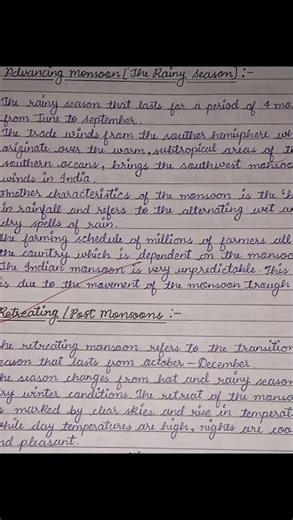 Advancing monsoon [The Rainy Season] :-
The rainy season that lasts for a period of 4 mo
from June to september.
The trade winds from the souther hemisphere wh
originate over the warm, subtropical areas of t
southern oceans, brings the southwest monsoo
winds in India.
Another characteristics of the monsoon is the 'b
in rainfall and refers to the alternating wet an
dry spells of rain.
The farming schedule of millions of farmers all
the country which is dependent on the monsoo
The Indian monsoon is very unpredictable. This
is due to the movement of the monsoon trough
Retreating / Post Monsoons :-
he retreating monsoon refers to the transition
eason that lasts from october - December.
he season changes from hot and rainy season
ry winter conditions. The retreat of the monso
s marked by clear skies and rise in temperat
hile day temperatures are high, nights are coo
nd pleasant.